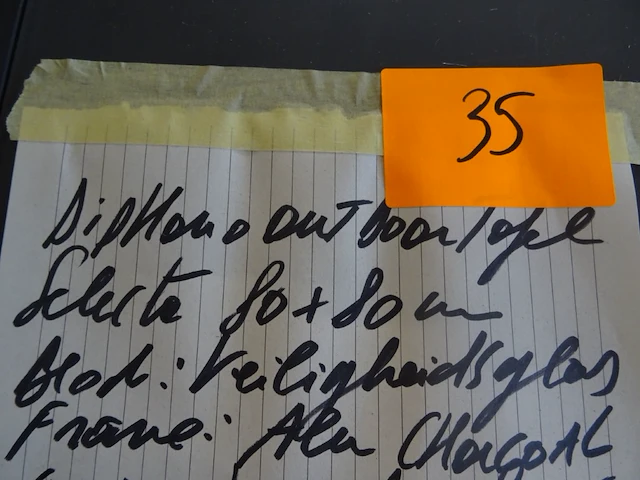 35
Diphano outdoor Tafel
Selecta 80 + 80 cm
Blad: Veiligheidsglas
Frame: Alu Charcoal